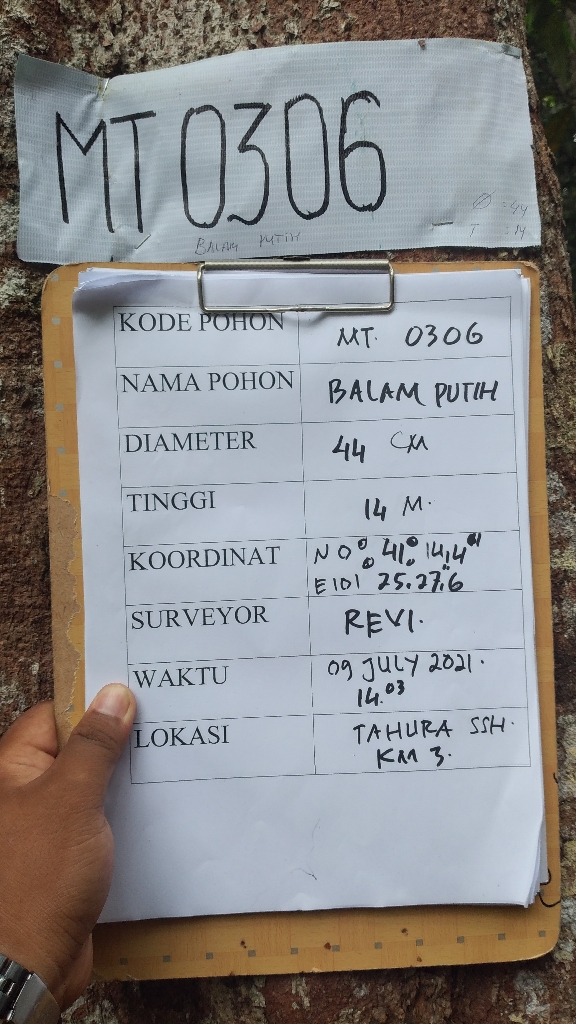 MT 0306
Ø : 44
T : 14
BALAM PUTIH
KODE POHON MT. 0306
NAMA POHON BALAM PUTIH
DIAMETER 44 CM
TINGGI 14 M.
KOORDINAT N 0° 41° 14,4"
E 101 25.27.6"
SURVEYOR REVI.
WAKTU 09 JULY 2021.
14.03
LOKASI TAHURA SSH.
KM 3.